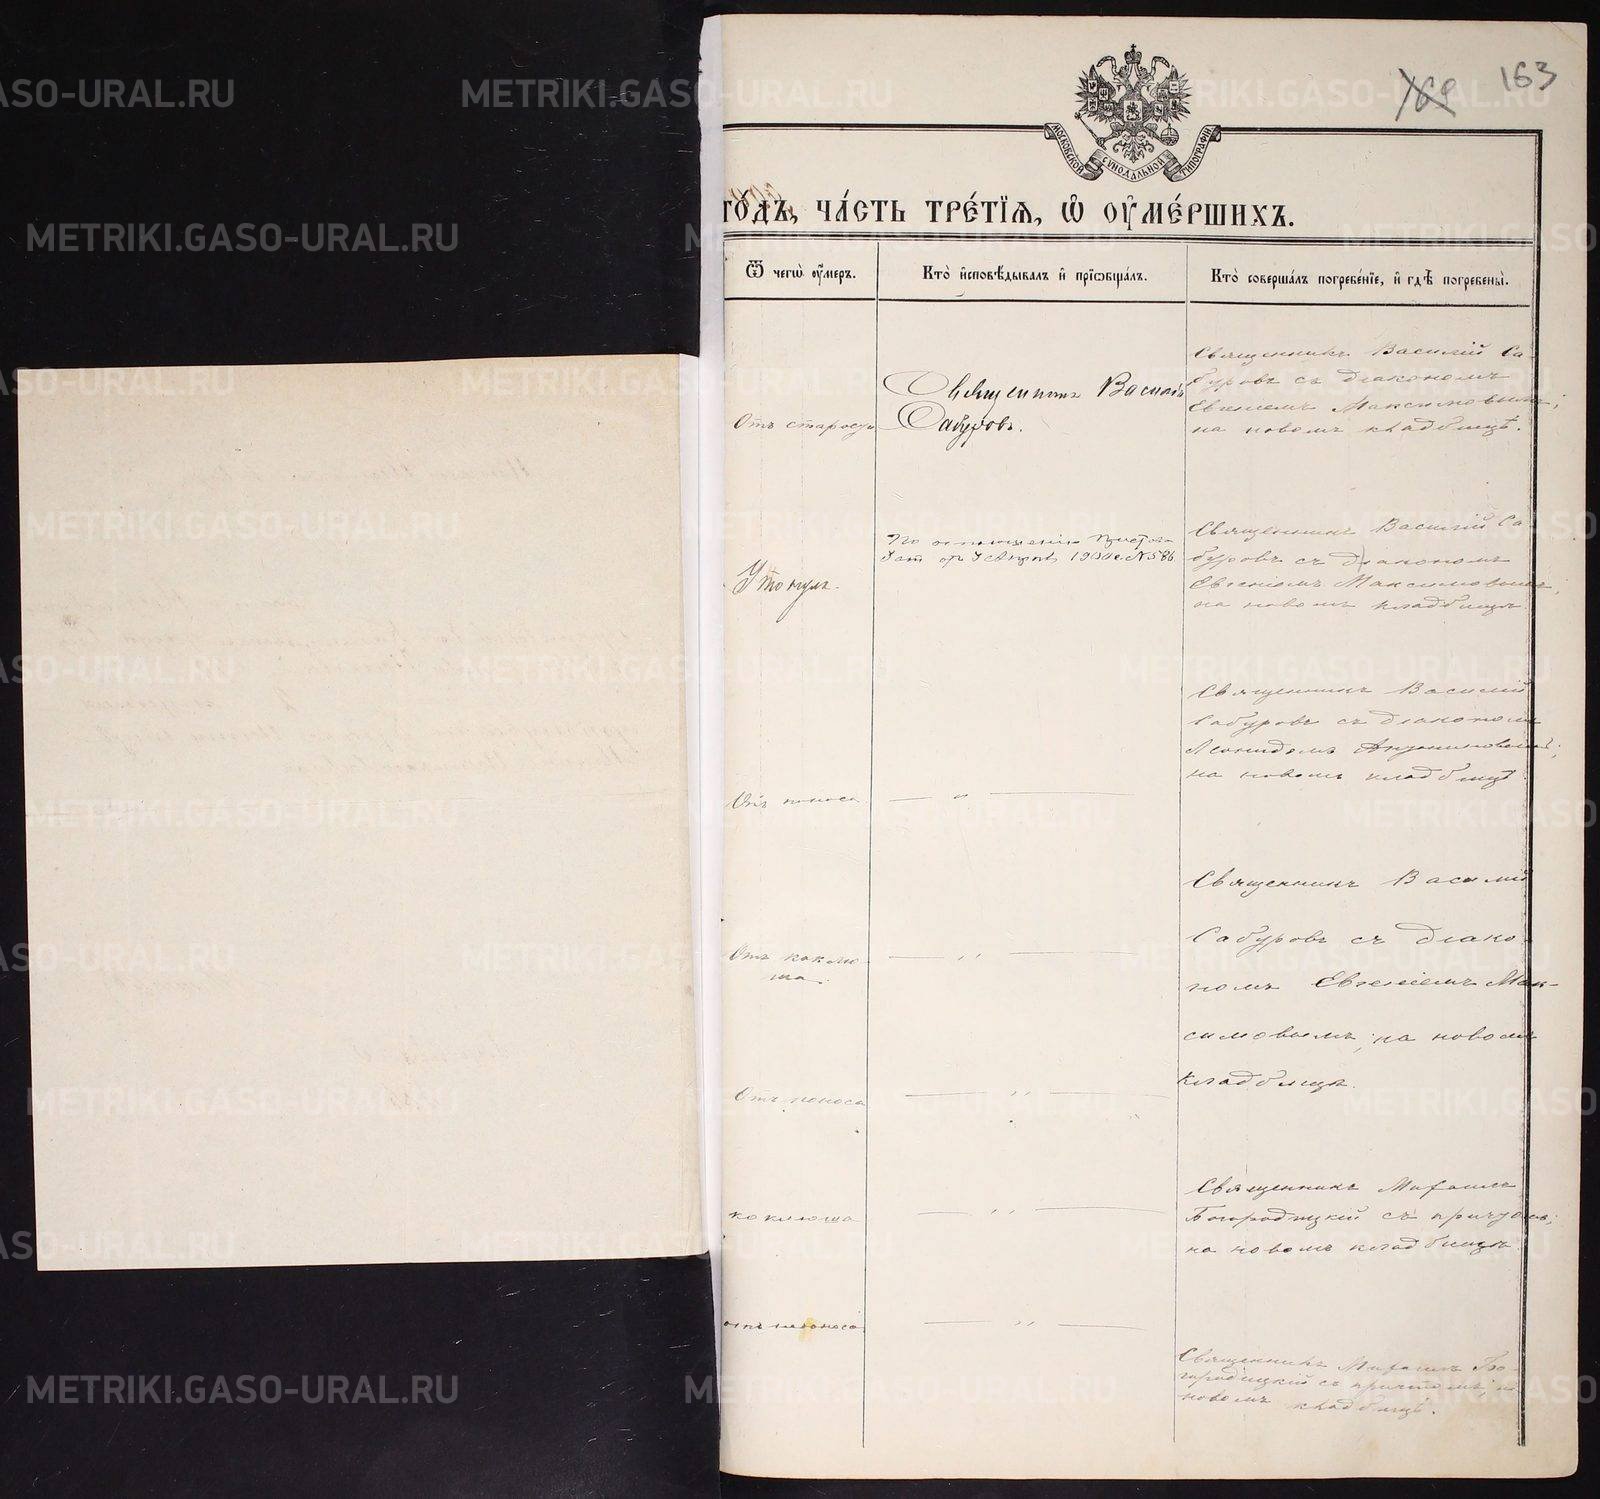 169 163
МОСКОВСКОЙ СѴНОДАЛЬНОЙ ТИПОГРАФІИ
го́дъ, ча́сть тре́тїѧ, ѡ҆ ᲂу҆ме́ршихъ.
Ѿ чегѡ̀ ᲂу҆́меръ.
Кто̀ и҆сповѣ́дывалъ и҆ прїѡбща́лъ.
Кто̀ соверша́лъ погребе́нїе, и҆ гдѣ̀ погребены̀.
Отъ старости
Священникъ Василій
Сабуровъ.
Священникъ Василій Са-
буровъ съ діакономъ
Евгеніемъ Максимовымъ;
на новомъ кладбищѣ.
Утонулъ.
По отношенію Пристава
отъ 1904 г. № 586
Священникъ Василій Са-
буровъ съ діакономъ
Евгеніемъ Максимовымъ;
на новомъ кладбищѣ
Отъ поноса
— „ —
Священникъ Василій
Сабуровъ съ діакономъ
Леонидомъ
на новомъ кладбищѣ.
Отъ коклю-
ша.
— „ —
Священникъ Василій
Сабуровъ съ діако-
номъ Евгеніемъ Мак-
симовымъ; на новомъ
кладбищѣ.
Отъ поноса
— „ —
коклюша
— „ —
Священникъ Михаилъ
Богородицкій съ причтомъ;
на новомъ кладбищѣ.
отъ поноса
— „ —
Священникъ Михаилъ Бо-
городицкій съ причтомъ; на
новомъ кладбищѣ.
METRIKI.GASO-URAL.RU